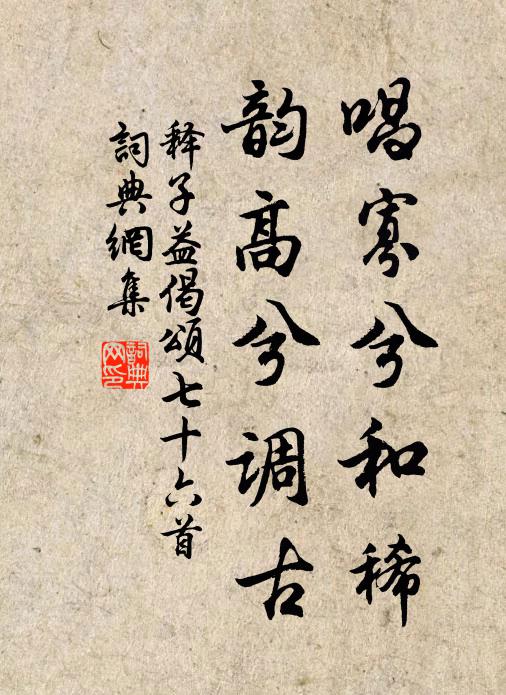 唱寡兮和稀
韵高兮调古
释子益偈颂七十六首
詞典網集
詞典网印